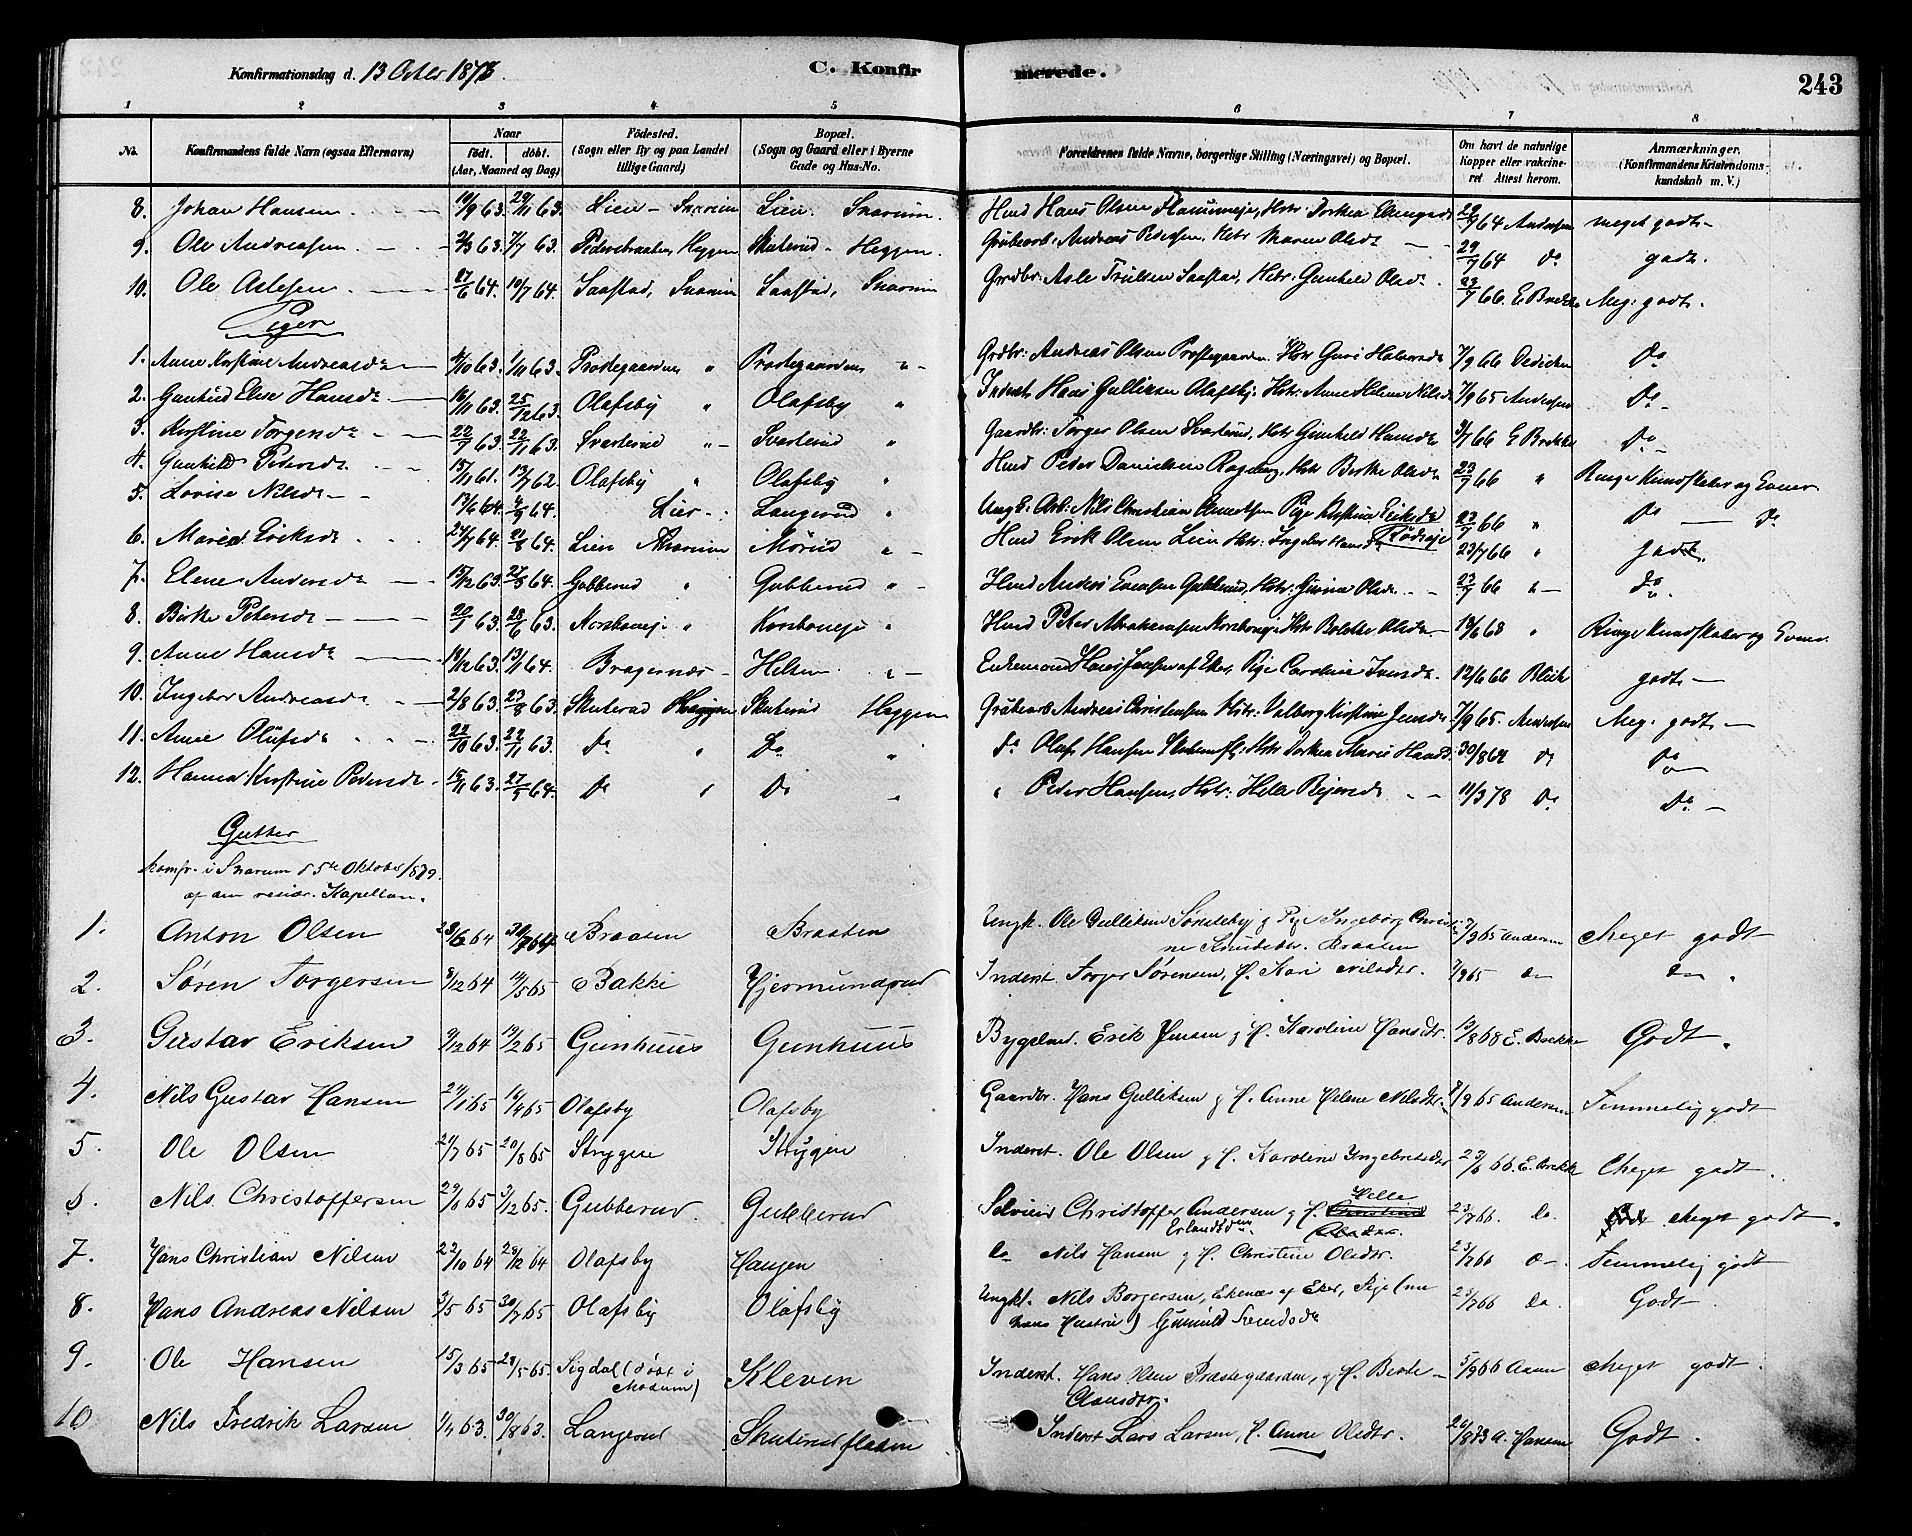 Konfirmationsdag d. 13 Octbr 1878. C. Konfirmerede. 243
1 2 3 4 5 6 7 8
No. Konfirmandens fulde Navn (ogsaa Efternavn) Naar født. døbt. (Aar, Maaned og Dag) Födested. (Sogn eller By og paa Landet tillige Gaard) Bopæl. (Sogn og Gaard eller i Byerne Gade og Hus-No. Forældrenes fulde Navne, borgerlige Stilling (Næringsvei) og Bopæl. Om havt de naturlige Kopper eller vakcineret Attest herom. Anmærkninger. (Konfirmandens Kristendomskundskab m. V.)
8. Johan Hansen 19/9 63. 29/11 63. Lien - Snarum Lien. Snarum. Hmd Hans Olsen 29/7 64 Andersen meget godt
9. Ole Andreasen 2/3 63. 7/7 63. Heggen Skuterud - Heggen. Grubearb. Andreas Pedersen, Hstr Maren Olsdr 29/7 64 Do godt.
10. Ole Aslesen 27/6 64. 10/7 64. Saastad, Snarum Saastad, Snarum Grdbr: Asle Trulsen Saastad, Hstr: Gunhild Olsdr. 23/7 66. E Brekke Meg: godt.
Piger
1. Anne Kirstine Andreasdr 4/10 63. 1/11 63. Prostegaarden " Prostegaarden " Grdbr: Andreas Olsen Prostegaarden Hstr Guri Halvorsdr 7/9 66 Dedichen Do
2. Gunhild Elise Hansdr 16/11 63. 25/12 63. Olafsby " Olafsby " Inderst Hans Gulliksen Olafsby. Hstr. Anne Helene Nilsdr 7/9 65 Andersen Do
3. Kirstine Torgersdr 22/7 63. 22/11 63. Svarterud " Svarterud " Gaardbr: Torger Olsen Svarterud, Hstr Gunhild Hansdr 3/7 66 E Brekke Do
4. Gunhild Pedersdr 15/11 61. 13/7 62. Olafsby " Olafsby " Hmd Peder Danielsen Hstr Berthe Olsdr 23/7 66 " Ringe Kundskaber og Evner.
5. Lovise Nilsdr 13/6 64. 4/9 64. Lier Langerud " Ungk. Arb: Nils Christian Pige Kirstine Eriksdr 23/7 66 " Do Do
6. Maria Eriksdr 24/4 64. 21/8 64. Lien Snarum Mørud " Hmd Erik Olsen Lien Hstr: Ingeborg Hansdr 23/7 66 " godt.
7. Elene Andersdr 15/12 63. 27/3 64. Gubberud " Gubberud " Hmd Anders Evensen Gubberud, Hstr: Gurine Olsdr 23/7 66 " Do
8. Birthe Petersdr 20/1 63. 28/6 63. Korsboneje " Korsboneje " Hmd Peter Abrahamsen Korsboneje Hstr Bolette Olsdr 19/6 68 " Ringe Kundskaber og Evner
9. Anne Hansdr 19/12 63. 13/11 64. Bragernæs Helsen " Enkemand Hans Jensen af Eker, Pige Caroline Iversdr. 12/6 66 Blich godt
10. Ingebor Andreasdr 2/8 63. 23/8 63. Skuterud Heggen Skuterud Heggen Grubearb Andreas Christensen Hstr: Valborg Kirstine Jensdr 7/9 65. Andersen Meg. godt
11. Anne Olufsdr 22/10 63. 22/11 63. Do " Do " Do Olaf Hansen Hstr Dorthea Marie Hansdr 30/8 64 Do Do
12. Hanna Kirstine Pedersdr 15/11 63. 27/3 64. Do " Do " " Peder Hansen, Hstr: Helle 11/3 78 Do Do
Gutter
konfr. i Snarum d 5te Oktober 1879.
af den resid. Kapellan.
1. Anton Olsen 23/6 64 30/7 64. Braaten Braaten Ungk. Ole Gulliksen Sønsteby og Pige Ingeborg Christi-
ne Knudsdtr. Braaten 7/9 65 Andersen Meget godt
2. Søren Torgersen 8/12 64 14/5 65 Bakke Hjermundrud Inderst Torger Sørensen, H. Kari Nilsdtr. 7/9 65 do do.
3. Gustav Eriksen 9/12 64 19/2 65 Gunhuus Gunhuus Bygselmd. Erik Jensen og H. Karoline Hansdtr. 13/8 68 E. Brekke Godt.
4. Nils Gustav Hansen 21/1 65 16/4 65 Olafsby Olafsby Gaardbr. Hans Gulliksen og H. Anne Helene Nilsdtr. 7/9 65 Andersen Temmelig godt
5. Ole Olsen 21/7 65 20/8 65 Strygen Strygen Inderst. Ole Olsen og H. Karoline Ingebretsdtr 23/6 66. E. Brekke Meget godt.
6. Nils Christoffersen 29/10 65 3/12 65. Gubberud Gubberud Selveier Christoffer Andersen og H. Helle
Erlandsdtr. 23/7 66. do Meget godt.
7. Hans Christian Nilsen 22/10 64 28/12 64 Olafsby Haugen do Nils Hansen og H. Christine Olsdtr. 23/7 66 do. Temmelig godt
8. Hans Andreas Nilsen 3/5 65 30/7 65 Olafsby Olafsby Ungkr. Nils Borgersen, Ekenæs af Eker, Pige (nu
hans Hustru) Gunnild Svendsdr 23/7 66 do Godt.
9. Ole Hansen 15/3 65 28/5 65. Sigdal (døbt i
Modum) Kleven Inderst. Hans Præstegaarden, og H. Berte
Clausdtr. 5/9 66 Meget godt.
10 Nils Fredrik Larsen 1/4 63. 30/8 63. Langerud Skuterudflaten Inderst Lars Larsen, H. Anne Olsdtr. 26/8 73 A. Hansen Godt.